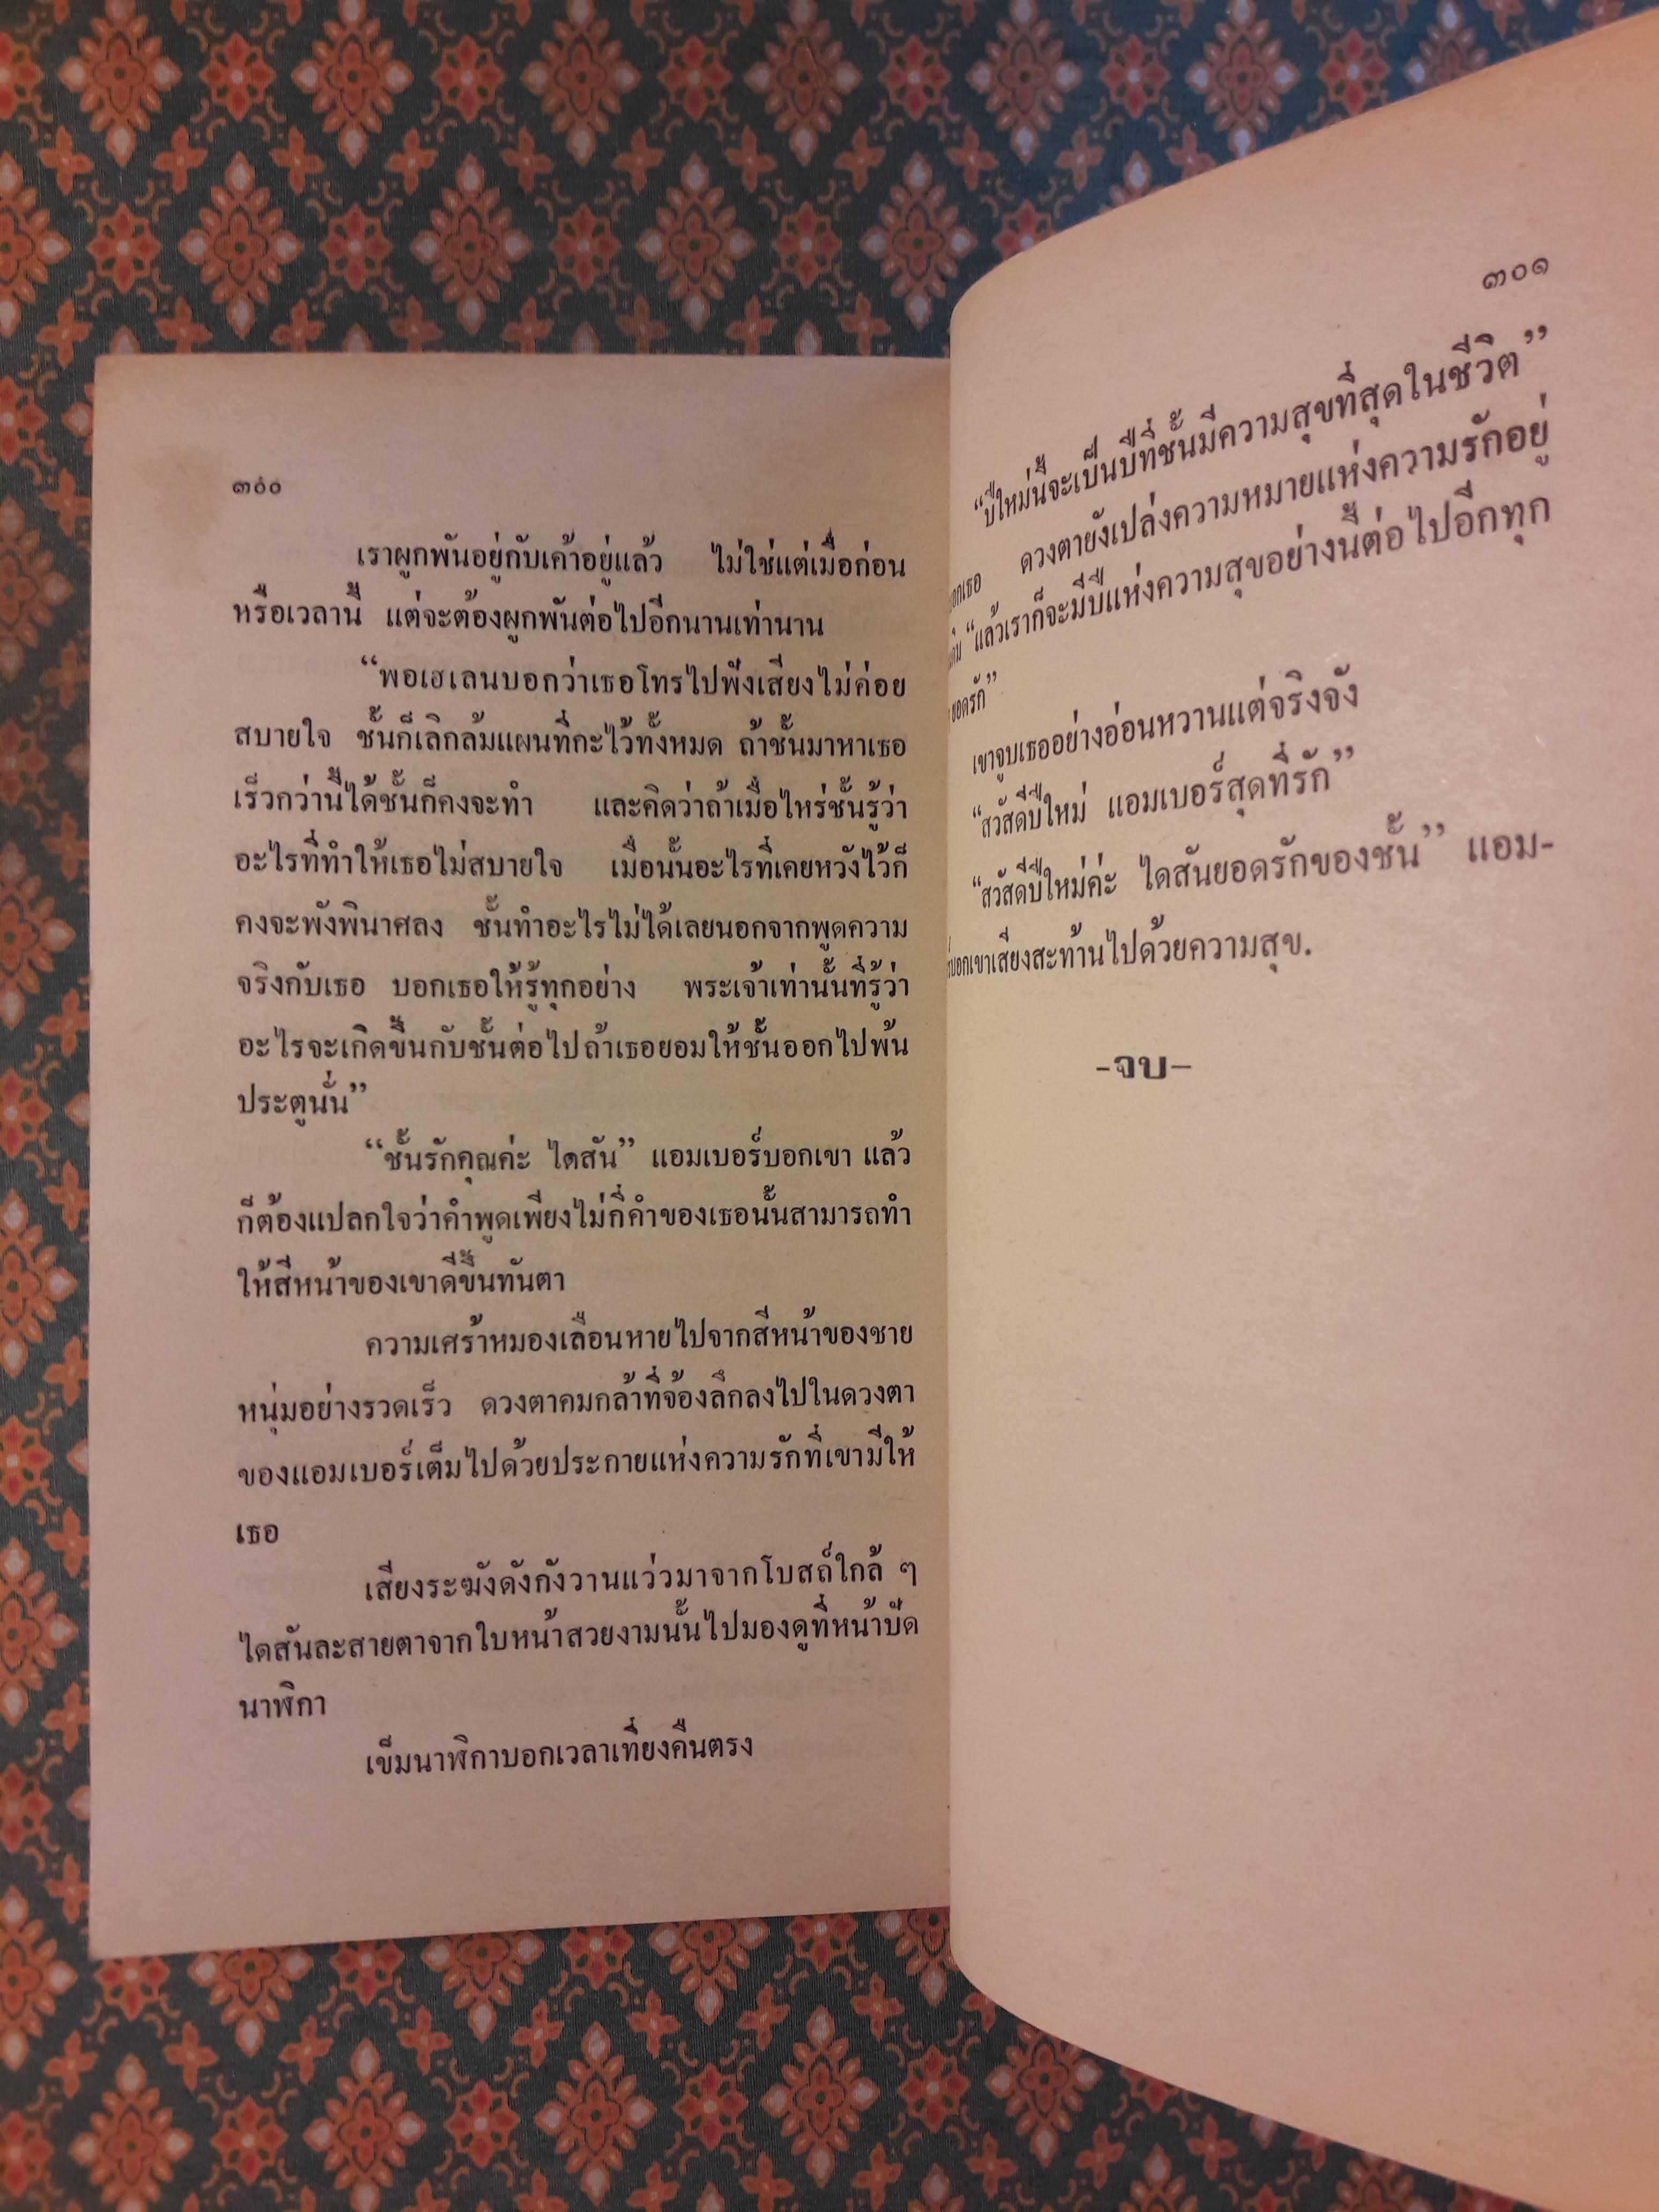 ๓๐๐
เราผูกพันอยู่กับเค้าอยู่แล้ว ไม่ใช่แต่เมื่อก่อน
หรือเวลานี้ แต่จะต้องผูกพันต่อไปอีกนานเท่านาน
“พอเฮเลนบอกว่าเธอโทรไปฟังเสียงไม่ค่อย
สบายใจ ชั้นก็เลิกล้มแผนที่กะไว้ทั้งหมด ถ้าชั้นมาหาเธอ
เร็วกว่านี้ได้ชั้นก็คงจะทำ และคิดว่าถ้าเมื่อไหร่ชั้นรู้ว่า
อะไรที่ทำให้เธอไม่สบายใจ เมื่อนั้นอะไรที่เคยหวังไว้ก็
คงจะพังพินาศลง ชั้นทำอะไรไม่ได้เลยนอกจากพูดความ
จริงกับเธอ บอกเธอให้รู้ทุกอย่าง พระเจ้าเท่านั้นที่รู้ว่า
อะไรจะเกิดขึ้นกับชั้นต่อไปถ้าเธอยอมให้ชั้นออกไปพ้น
ประตูนั่น”
“ชั้นรักคุณค่ะ ไดสัน” แอมเบอร์บอกเขา แล้ว
ก็ต้องแปลกใจว่าคำพูดเพียงไม่กี่คำของเธอนั้นสามารถทำ
ให้สีหน้าของเขาดีขึ้นทันตา
ความเศร้าหมองเลือนหายไปจากสีหน้าของชาย
หนุ่มอย่างรวดเร็ว ดวงตาคมกล้าที่จ้องลึกลงไปในดวงตา
ของแอมเบอร์เต็มไปด้วยประกายแห่งความรักที่เขามีให้
เธอ
เสียงระฆังดังกังวานแว่วมาจากโบสถ์ใกล้ ๆ
ไดสันละสายตาจากใบหน้าสวยงามนั้นไปมองดูที่หน้าปัด
นาฬิกา
เข็มนาฬิกาบอกเวลาเที่ยงคืนตรง
๓๐๑
“ปีใหม่นี้จะเป็นปีที่ชั้นมีความสุขที่สุดในชีวิต”
บอกเธอ ดวงตายังเปล่งความหมายแห่งความรักอยู่
“แล้วเราก็จะมีปีแห่งความสุขอย่างนี้ต่อไปอีกทุก
ยอดรัก”
เขาจูบเธออย่างอ่อนหวานแต่จริงจัง
“สวัสดีปีใหม่ แอมเบอร์สุดที่รัก”
“สวัสดีปีใหม่ค่ะ ไดสันยอดรักของชั้น” แอม-
บอกเขาเสียงสะท้านไปด้วยความสุข.
-จบ-